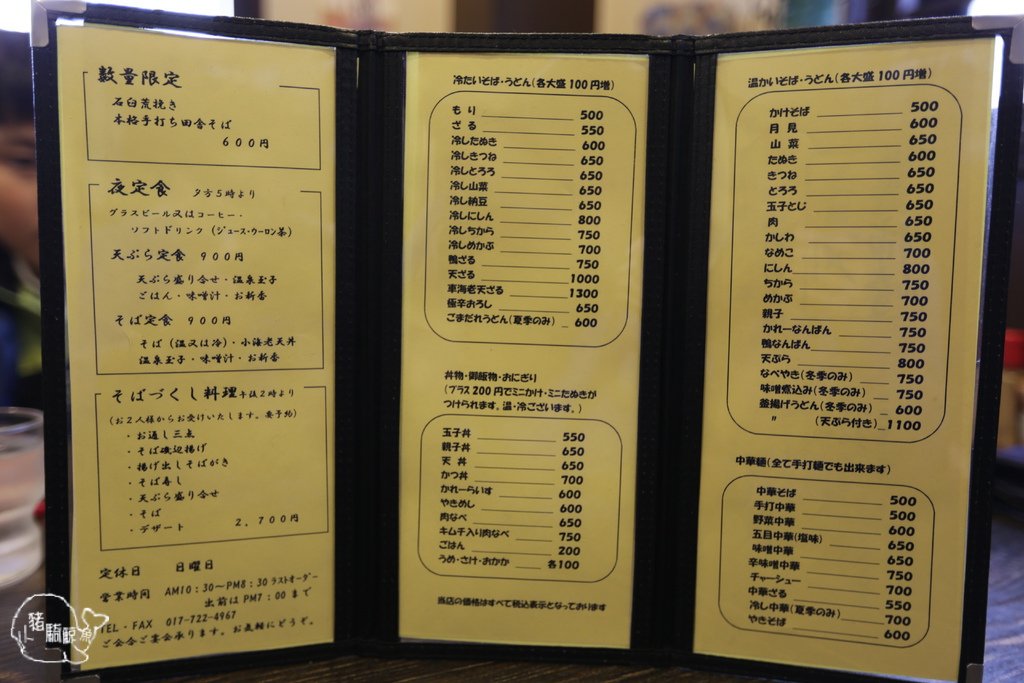 数量限定
石臼荒挽き
本格手打ち田舎そば
600円
夜定食 夕方5時より
グラスビール又はコーヒー・
ソフトドリンク(ジュース・ウーロン茶)
天ぷら定食 900円
天ぷら盛り合せ・温泉玉子
ごはん・味噌汁・お新香
そば定食 900円
そば(温又は冷)・小海老天丼
温泉玉子・味噌汁・お新香
そばづくし料理 午後2時より
(お2人様からお受けいたします。要予約)
・お通し三点
・そば磯辺揚げ
・揚げ出しそばがき
・そば寿し
・天ぷら盛り合せ
・そば
・デザート 2,700円
定休日 日曜日
営業時間 AM10:30～PM8:30 ラストオーダー
出前はPM7:00まで
TEL・FAX 017-722-4967
ご会合ご宴会承ります。お気軽にどうぞ。
冷たいそば・うどん(各大盛100円増)
もり 500
ざる 550
冷したぬき 600
冷しきつね 650
冷しとろろ 650
冷し山菜 650
冷し納豆 650
冷しにしん 800
冷しちから 750
冷しめかぶ 700
鴨ざる 750
天ざる 1000
車海老天ざる 1300
極辛おろし 650
ごまだれうどん(夏季のみ) 600
丼物・御飯物・おにぎり
(プラス200円でミニかけ・ミニたぬきが
つけられます。温・冷ございます。)
玉子丼 550
親子丼 650
天丼 650
かつ丼 700
かれーらいす 600
やきめし 600
肉なべ 650
キムチ入り肉なべ 750
ごはん 200
うめ・さけ・おかか 各100
当店の価格はすべて税込表示となっております
温かいそば・うどん(各大盛100円増)
かけそば 500
月見 600
山菜 650
たぬき 600
きつね 650
とろろ 650
玉子とじ 650
肉 650
かしわ 650
なめこ 700
にしん 800
ちから 750
めかぶ 700
親子 750
かれーなんばん 750
鴨なんばん 750
天ぷら 800
なべやき(冬季のみ) 750
味噌煮込み(冬季のみ) 750
釜揚げうどん(冬季のみ) 600
〃 (天ぷら付き) 1100
中華麺(全て手打麺でも出来ます)
中華そば 500
手打中華 500
野菜中華 600
五目中華(塩味) 650
味噌中華 650
辛味噌中華 750
チャーシュー 750
中華ざる 550
冷し中華(夏季のみ) 700
やきそば 600
豬騎鯨魚